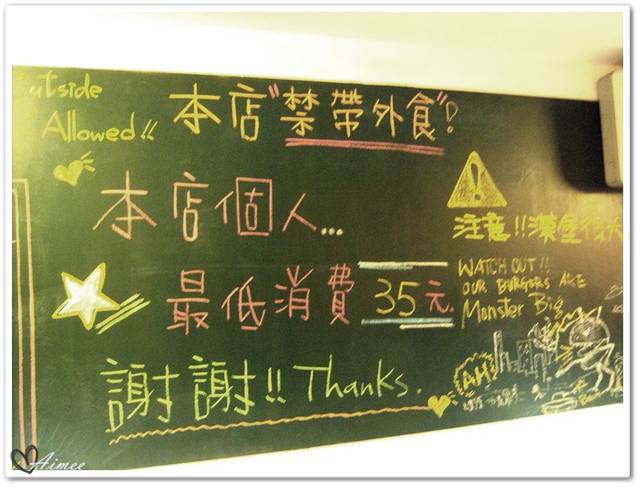 Outside
Allowed!!
本店"禁帶外食"!
本店個人...
最低消費 35元.
謝謝!! Thanks.
注意!!漢堡很大
WATCH OUT!!
OUR BURGERS ARE
Monster Big
AH!
Aimee